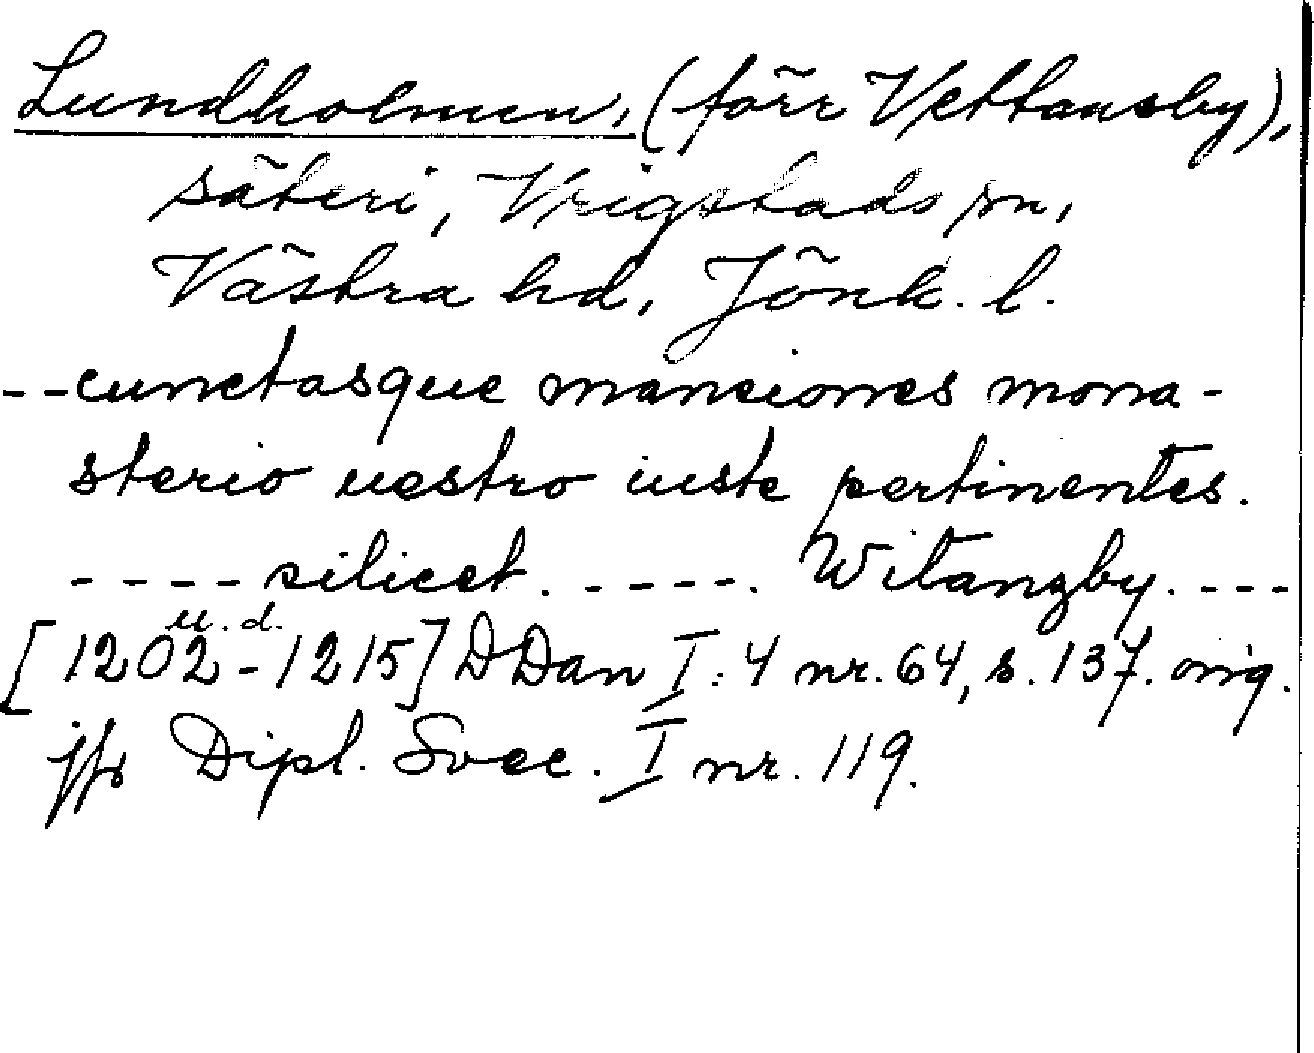 Lundholmen, (förr Vettansby),
säteri, Vrigstads sn,
Västra hd, Jönk. l.
-- cunctasque mansiones mona-
sterio uestro iuste pertinentes.
---- silicet. ----. Witanzby. ---
u. d.
[1202-1215] DDan I:4 nr. 64, s. 137. orig.
jfr Dipl. Svec. I nr. 119.